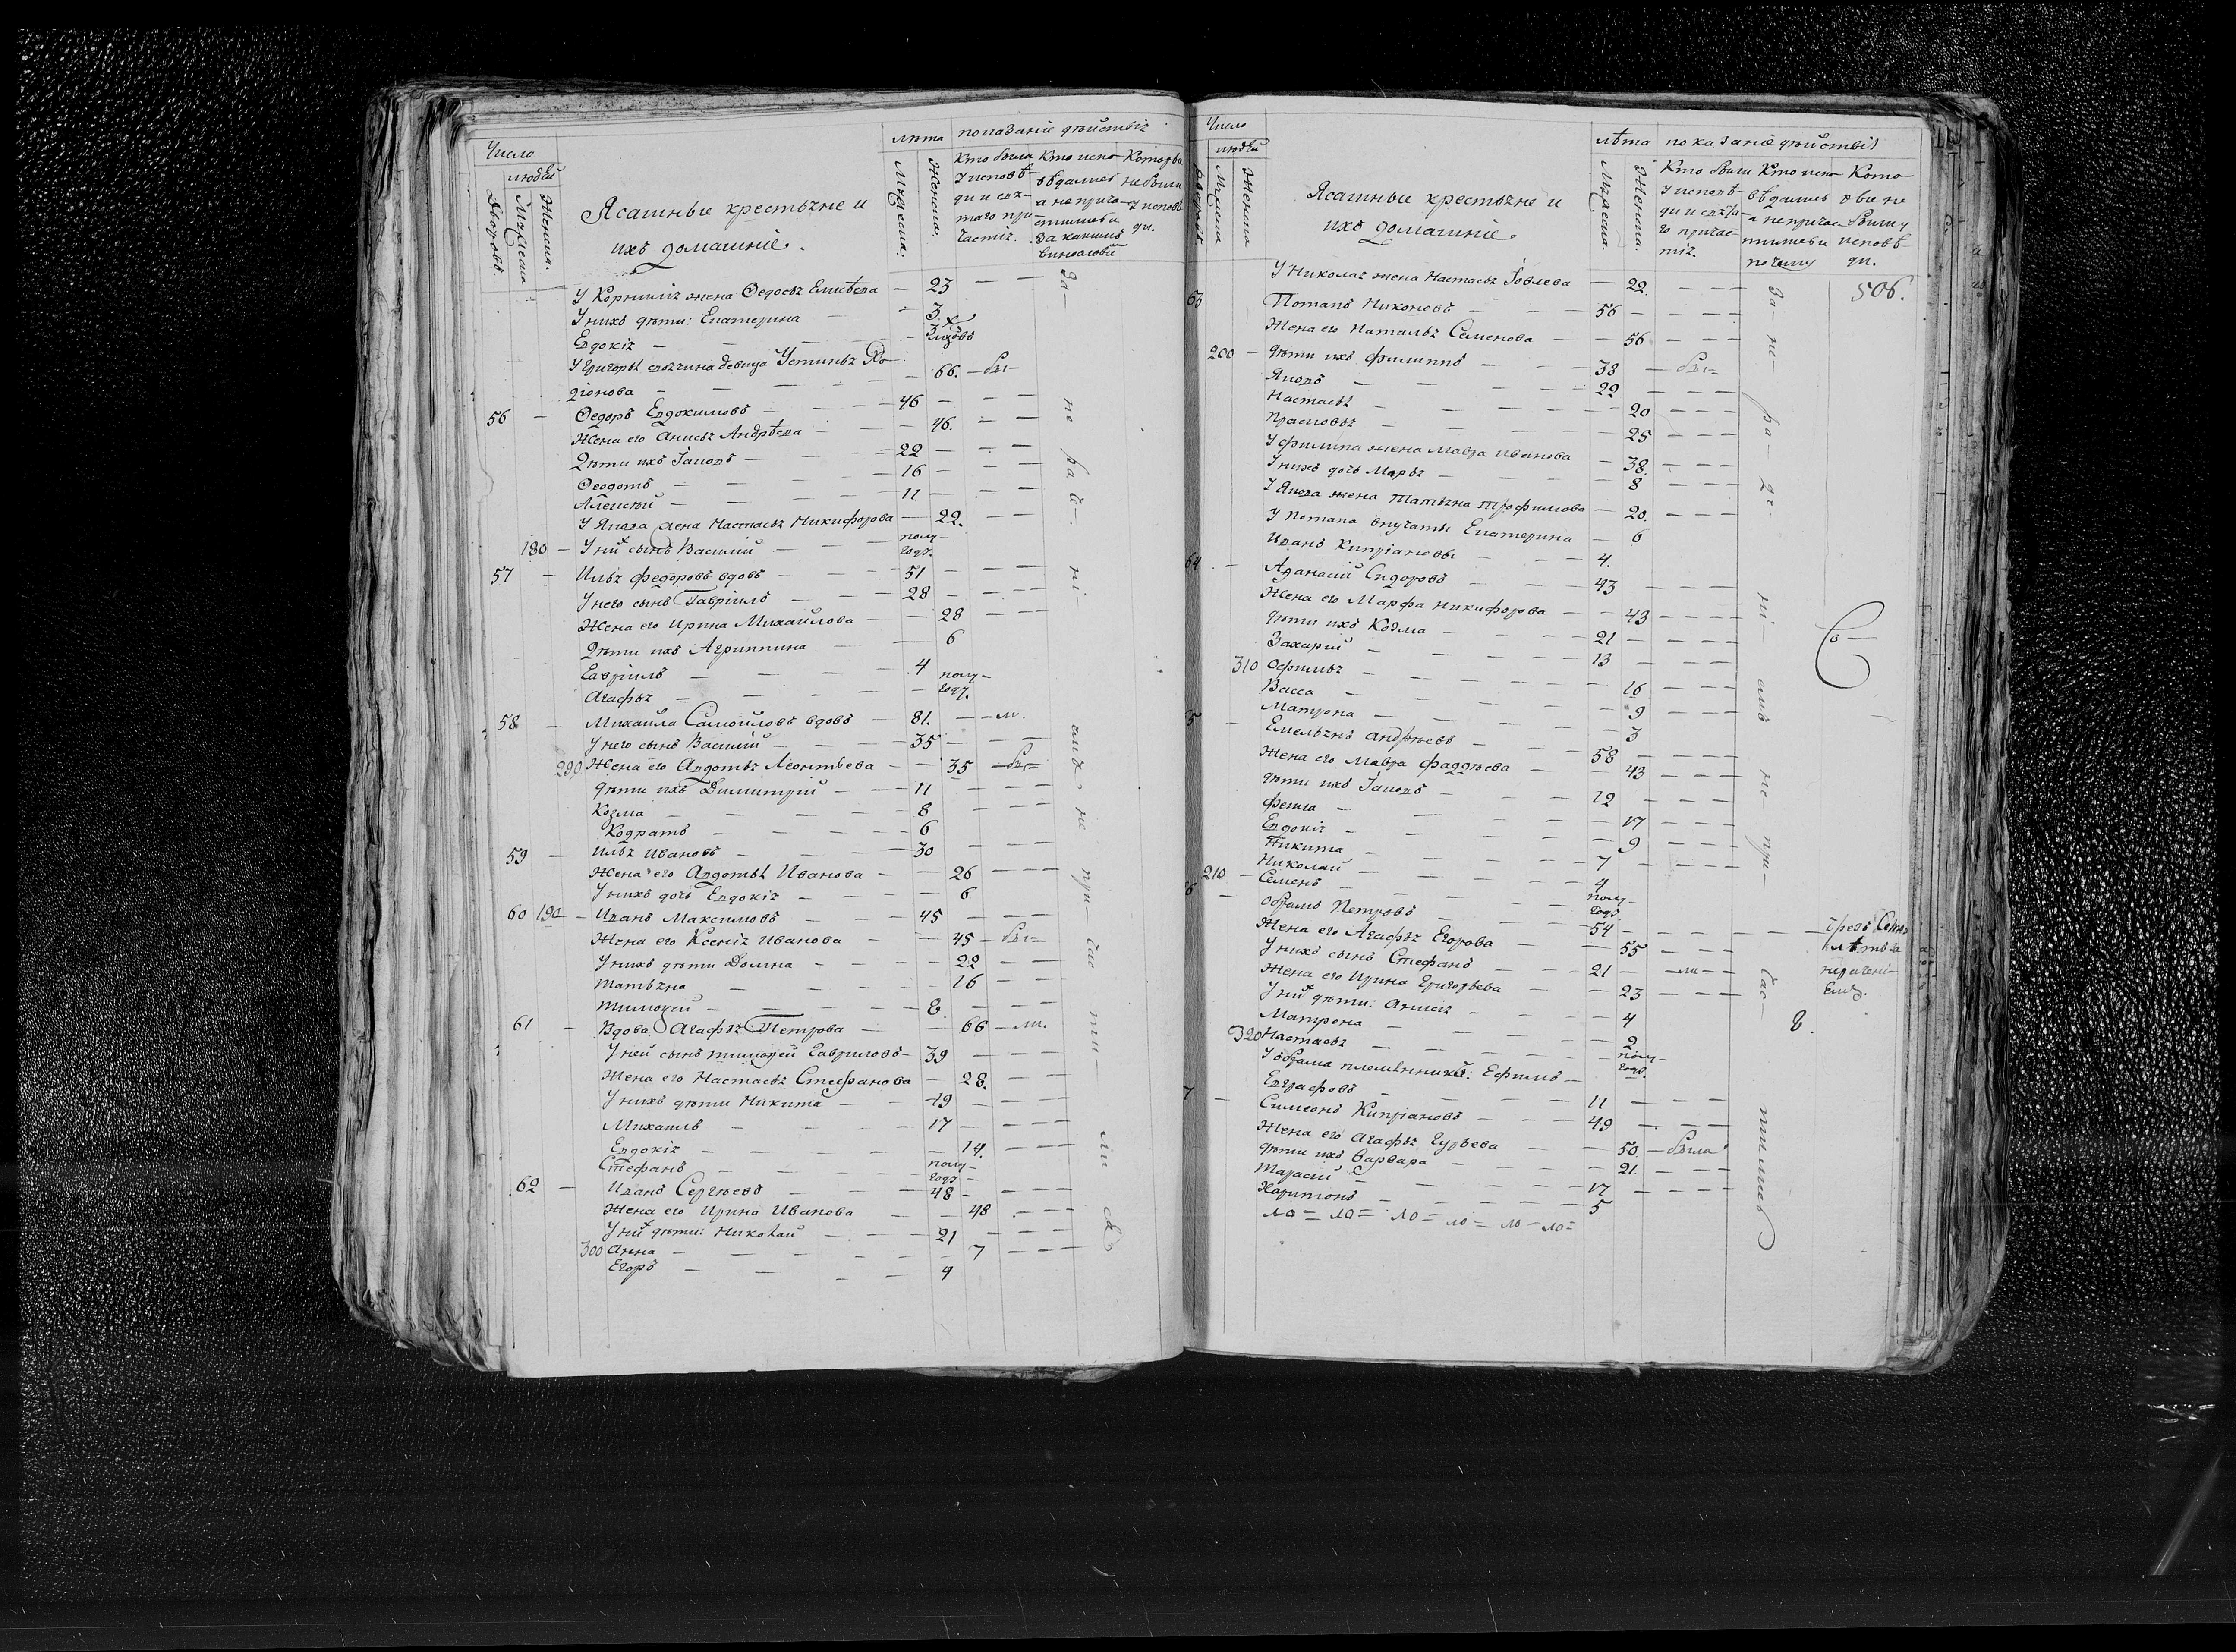 Число
людей
Дворовъ.
Мужеска
Женска.
Ясашные крестьяне и
ихъ домашніе.
лѣта
Мужеска.
Женска.
показаніе дѣйствія
Кто были
у исповѣ-
ди и свя-
таго при-
частія.
Кто испо
вѣдались
а не прича-
стились и
за какимъ
винословіемъ
Которыя
не были
у исповѣ
ди.
У Корнилія жена Ѳедосья Елисѣева — 23 — —
У нихъ дѣти: Екатерина — 3
Евдокія — — —
У Григорья своячина девица Устинья Ро-
діонова — — — 66. — бы-
56 — Ѳедоръ Евдокимовъ — 46 — — —
Жена его Анисья Андрѣева — 46. — —
Дѣти ихъ Іаковъ — 22 — — —
Ѳедотъ — — — 16 — — —
Алексѣй — — — 11 — — —
У Якова жена Настасья Никифорова — 22. — —
180 — У них сынъ Василій — полу-
году.
57 — Илья Федоровъ вдовъ — 51 — — —
У него сынъ Гавріилъ — 28 — — —
Жена его Ирина Михайлова — 28 — —
Дѣти ихъ Агрипина — 6
Гавріилъ — — 4
Агафья — — — полу-
году.
58 — Михайла Самойловъ вдовъ — 81. — — ли.
У него сынъ Василій — 35 — — —
290 Жена его Авдотья Леонтьева — 35 — бы-
дѣти ихъ Димитрій — 11 — — —
Козма — — — 8 — — —
Кодратъ — — — 6
59 — Илья Ивановъ — — 30 — — —
Жена его Авдотья Иванова — 26 — — —
У нихъ дочь Евдокія — 6
60 190 — Иванъ Максимовъ — 45 — — —
Жена его Ксенія Иванова — 45 — бы-
У нихъ дѣти Домна — 22 — —
Татьяна — — 16 — —
Тимоѳей — — 8. — — —
61 — Вдова Агафья Петрова — 66 — ли.
У ней сынъ Тимоѳей Гавриловъ — 39 — — —
Жена его Настасья Стефанова — 28. — —
У нихъ дѣти Никита — 19 — — —
Михаилъ — — 17 — — —
Евдокія — — 14. — — —
Стефанъ — — полу-
году —
62 — Иванъ Сергѣевъ — 48 — — —
Жена его Ирина Иванова — 48 — — —
У них дѣти: Николай — 21 — — —
300 Анна — — 7 — — —
Егоръ — — 4
За-
не
ра
ні
не
при-
час
ти-
Число
людей
Мужеска
Женска
Ясашные крестьяне и
ихъ домашніе.
лѣта
Мужеска.
Женска.
показаніе дѣйствія
Кто были
у исповѣ-
ди и свята-
го причас-
тія.
Кто испо
вѣдались
а не причас-
тились и
почему
Кото
рые не
были у
исповѣ
ди.
506.
У Николая жена Настасья Іовлева — 22. — — —
63 Потапъ Никоновъ — — — 56 — — — —
Жена его Наталья Семенова — 56 — — —
200 — дѣти ихъ Филиппъ — — 38 — бы-
Яковъ — — — 22 — — — —
Настасья — — — 20 — — —
Прасковья — — — 25 — — —
У Филипа жена Мавра Иванова — 38. — — —
У нихъ дочь Марья — — 8 — — —
У Якова жена Татьяна Трофимова — 20. — — —
У Потапа внучаты Екатерина — 6
Иванъ Кипріановы — — 4.
64 — Аѳанасій Сидоровъ — — 43 — — —
Жена его Марфа Никифорова — 43 — — — —
дѣти ихъ Козма — — 21 — — —
Захарій — — — 13 — — —
310 Офимья — — — 16 — — —
Васса — — — 9 — — —
Матрона — — — 3
65 — Емельянъ Андрѣевъ — 58 — — —
Жена его Мавра Фаддѣева — 43 — — —
дѣти ихъ Іаковъ — — 12 — — —
Фекла — — — 17 — — —
Евдокія — — — 9 — — —
Никита — — — 7 — — —
Николай — — — 4
210 — Семенъ — — — полу-
году.
Обрамъ Петровъ — — 54 — — — —
Жена его Агафья Егорова — 55 — — —
У нихъ сынъ Стефанъ — 21 — ли — —
Жена его Ирина Григорьева — 23 — — —
У них дѣти: Анисія — — 4
Матрона — — — 2
320 Настасья — — — полу-
году.
У Обрама племянникъ: Ефимъ —
Евграфовъ — — — 11 — — —
7 — Симеонъ Кипріановъ — 49 — — —
Жена его Агафья Гурьева — 50 — была
дѣти ихъ Варвара — — 21. — — —
Тарасій — — — 17 — — —
Харитонъ — — — 5
За-
не-
ра
ді-
ні-
емъ
не
при-
час-
тились